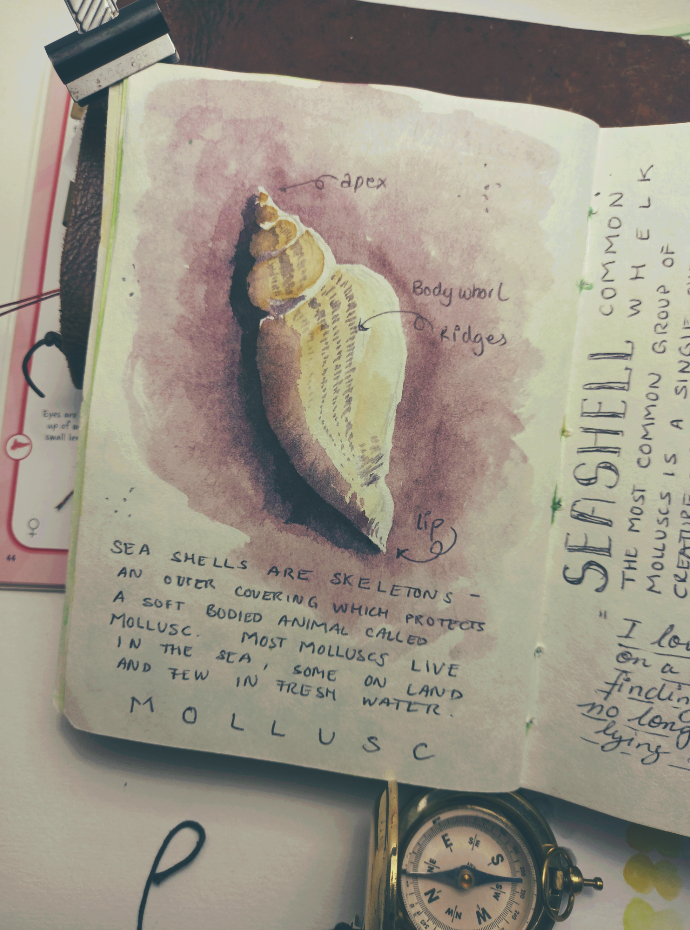 apex
Body whorl
Ridges
lip
SEA SHELLS ARE SKELETONS -
AN OUTER COVERING WHICH PROTECTS
A SOFT BODIED ANIMAL CALLED
MOLLUSC. MOST MOLLUSCS LIVE
IN THE SEA, SOME ON LAND
AND FEW IN FRESH WATER.
MOLLUSC
SEASHELL COMMON
WHELK
THE MOST COMMON GROUP OF
MOLLUSCS IS A SINGLE
CREATURE
"I
on a
no
lying
Eyes are
up of
small
44
E
SE
S
SW
W
NW
N
NE